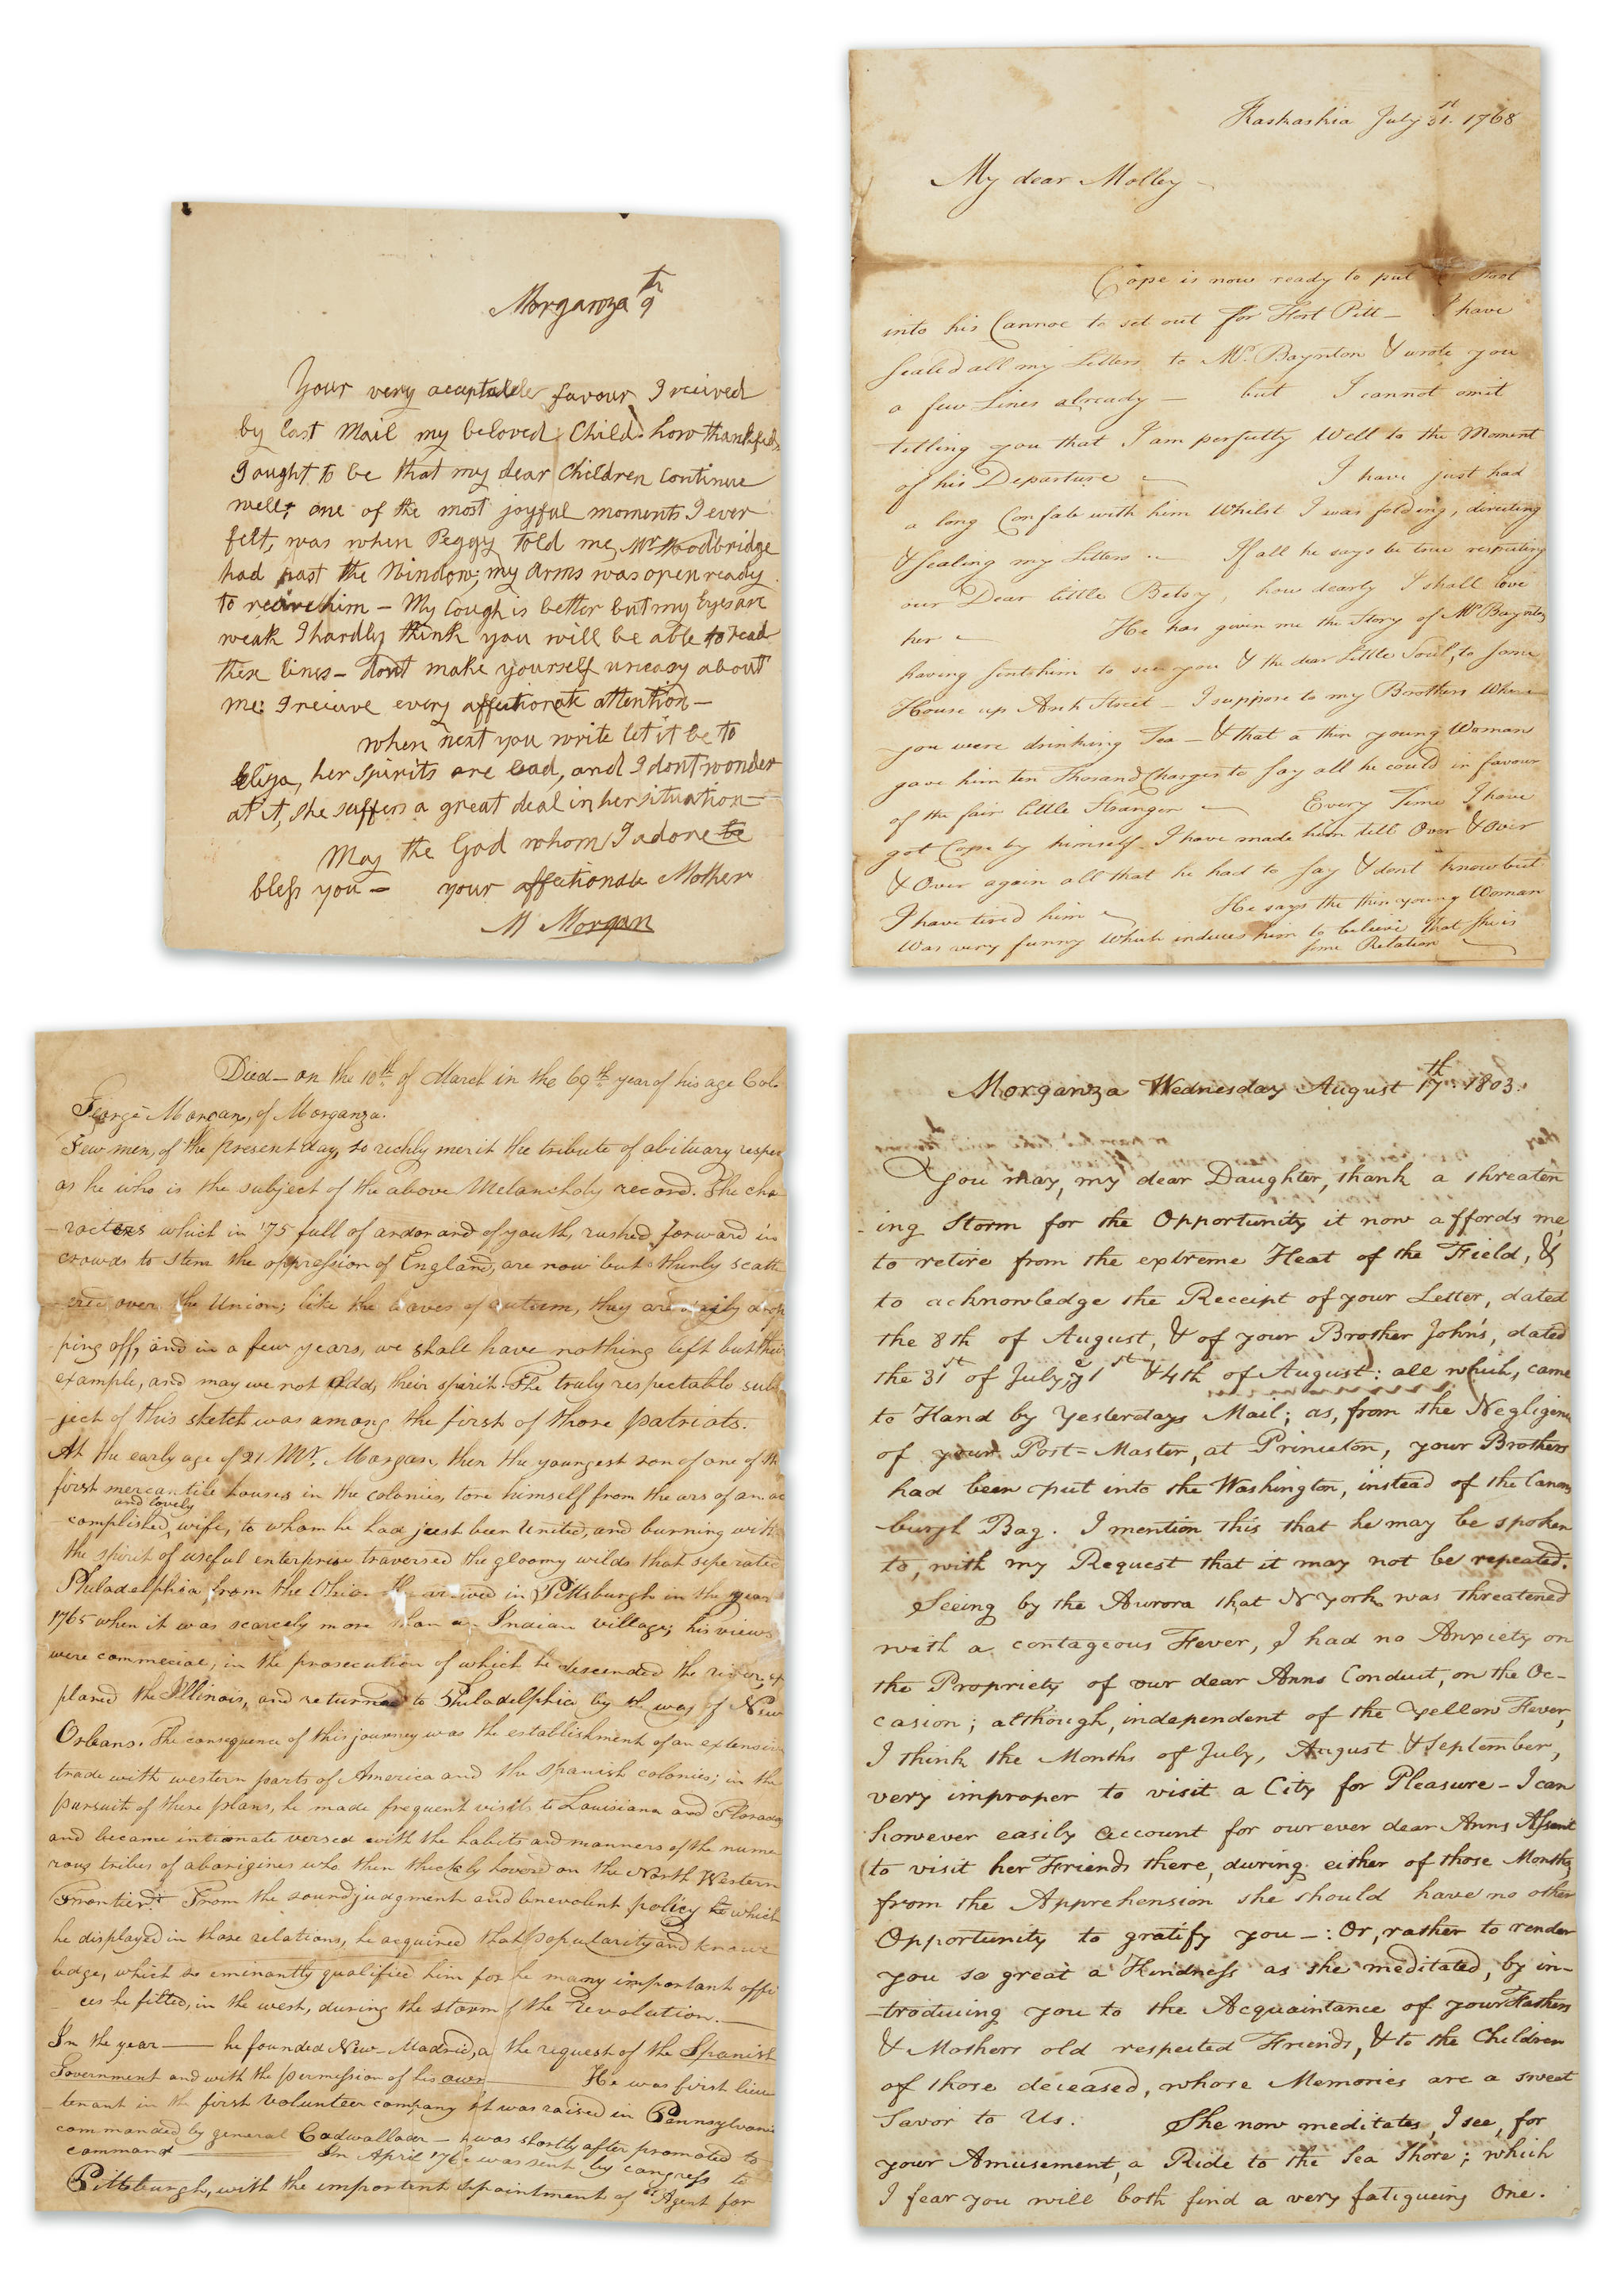 Morganza 9th
Your very acceptable favour I recieved
by last Mail my beloved Child. how thankful
I ought to be that my dear Children Continue
well; one of the most joyful moments I ever
felt, was when Peggy told me, Mr Woodbridge
had past the Window; my Arms was open ready
to recive him – My Cough is better but my Eyes are
weak I hardly think you will be able to read
these lines – don't make yourself uneasy about
me: I recieve every affectionate attention –
when next you write let it be to
Eliza, her spirits are bad, and I dont wonder
at it, she suffers a great deal in her situation –
May the God whom I adore be
bless you – your affectionate Mother
M Morgan
Kaskaskia July 31st. 1768
My dear Molley –
Cope is now ready to put Foot
into his Cannoe to set out for Fort Pitt – I have
Sealed all my Letters to Mr. Baynton & wrote you
a few Lines already – but I cannot omit
telling you that I am perfectly Well to the Moment
of his Departure – I have just had
a long Confab with him Whilst I was folding, directing
& Sealing my Letters – If all he says be true respecting
our Dear little Betsy, how dearly I shall love
her – He has given me the Story of Mr Bayntons
having sent him to see you & the dear Little Soul, to some
House up Arch Street – I suppose to my Brothers Where
you were drinking Tea – & that a thin young Woman
gave him ten Thosand Charges to say all he could in favour
of the fair little Stranger – Every Time I have
got Cope by himself I have made him tell Over & Over
& Over again all that he had to say & dont know but
I have tired him – He says the thin young Woman
was very funny Which induces him to believe that She is
some Relation
Died – on the 10th. of March in the 69th. year of his age Col.
George Morgan, of Morganza.
Few men, of the present day, so richly merit the tribute of obituary respec
as he who is the subject of the above Melancholy record. The cha
-racters which in '75 full of ardor and of youth, rushed forward in
crowds to stem the oppression of England, are now but thinly scatt
-ered over the Union; like the leaves of autumn, they are daily drop
-ping off, and in a few years, we shall have nothing left but their
example, and may we not add, their spirit. The truly respectable sub
-ject of this sketch was among the first of those patriots.
At the early age of 21 Mr. Morgan, then the youngest son of one of th
first mercantile houses in the colonies, tore himself from the arms of an ac
and lovely
-complished, wife, to whom he had just been United, and burning with
the spirit of useful enterprise traversed the gloomy wilds that seperated
Philadelphia from the Ohio. He arrived in Pittsburgh in the year
1765 when it was scarcely more than an Indian village; his views
were commecial, in the prosecution of which he descended the river, ex
plored the Illinois, and returned to Philadelphia by the way of New
Orleans. The consequence of this journey was the establishment of an extensive
trade with western parts of America and the Spanish colonies; in the
pursuit of these plans, he made frequent visits to Louisiana and Floradas
and became intimate versed with the habits and manners of the nume
rous tribes of aborigines who then thickly hovered on the North Western
Frontier. From the sound judgment and benevolent policy which
he displayed in those relations, he acquired that popularity and know
ledge, which so eminantly qualified him for he many important offi
ces he filled, in the west, during the storm of the revolution. –
In the year — he founded New-Madrid, a the request of the Spanish
Government and with the permission of his own He was first lieu
-tenant in the first volunteer company tht was raised in Pennsylvania
commanded by general Cadwallader – was shortly after promoted to
command In April 176 he was sent by congress to
Pittsburgh, with the important appointment of "Agent for
Morganza Wednesday August 17th. 1803.
You may, my dear Daughter, thank a threaten
-ing Storm for the Opportunity it now affords me,
to retire from the extreme Heat of the Field, &
to acknowledge the Receipt of your Letter, dated
the 8th of August, & of your Brother John's, dated
the 31st of July, 1st & 4th of August: all which, came
to Hand by Yesterdays Mail; as, from the Negligence
of your Post=Master, at Princeton, your Brothers
had been put into the Washington, instead of the Canons
-burgh Bag. I mention this that he may be spoken
to, with my Request that it may not be repeated.
Seeing by the Aurora that N York was threatened
with a contageous Fever, I had no Anxiety on
the Propriety of our dear Anns Conduct, on the Oc-
casion; although, independent of the Yellow Fever,
I think the Months of July, August & September,
very improper to visit a City for Pleasure – I can
however easily account for our ever dear Anns Assent
(to visit her Friends there, during either of those Months)
from the Apprehension she should have no other
Opportunity to gratify you –: Or, rather to render
you so great a Kindness as she meditated, by in-
-troducing you to the Acquaintance of your Fathers
& Mothers old respected Friends, & to the Children
of those deceased, whose Memories are a sweet
Savor to Us. She now meditates, I see, for
your Amusement, a Ride to the Sea Shore; which
I fear you will both find a very fatigueing One.